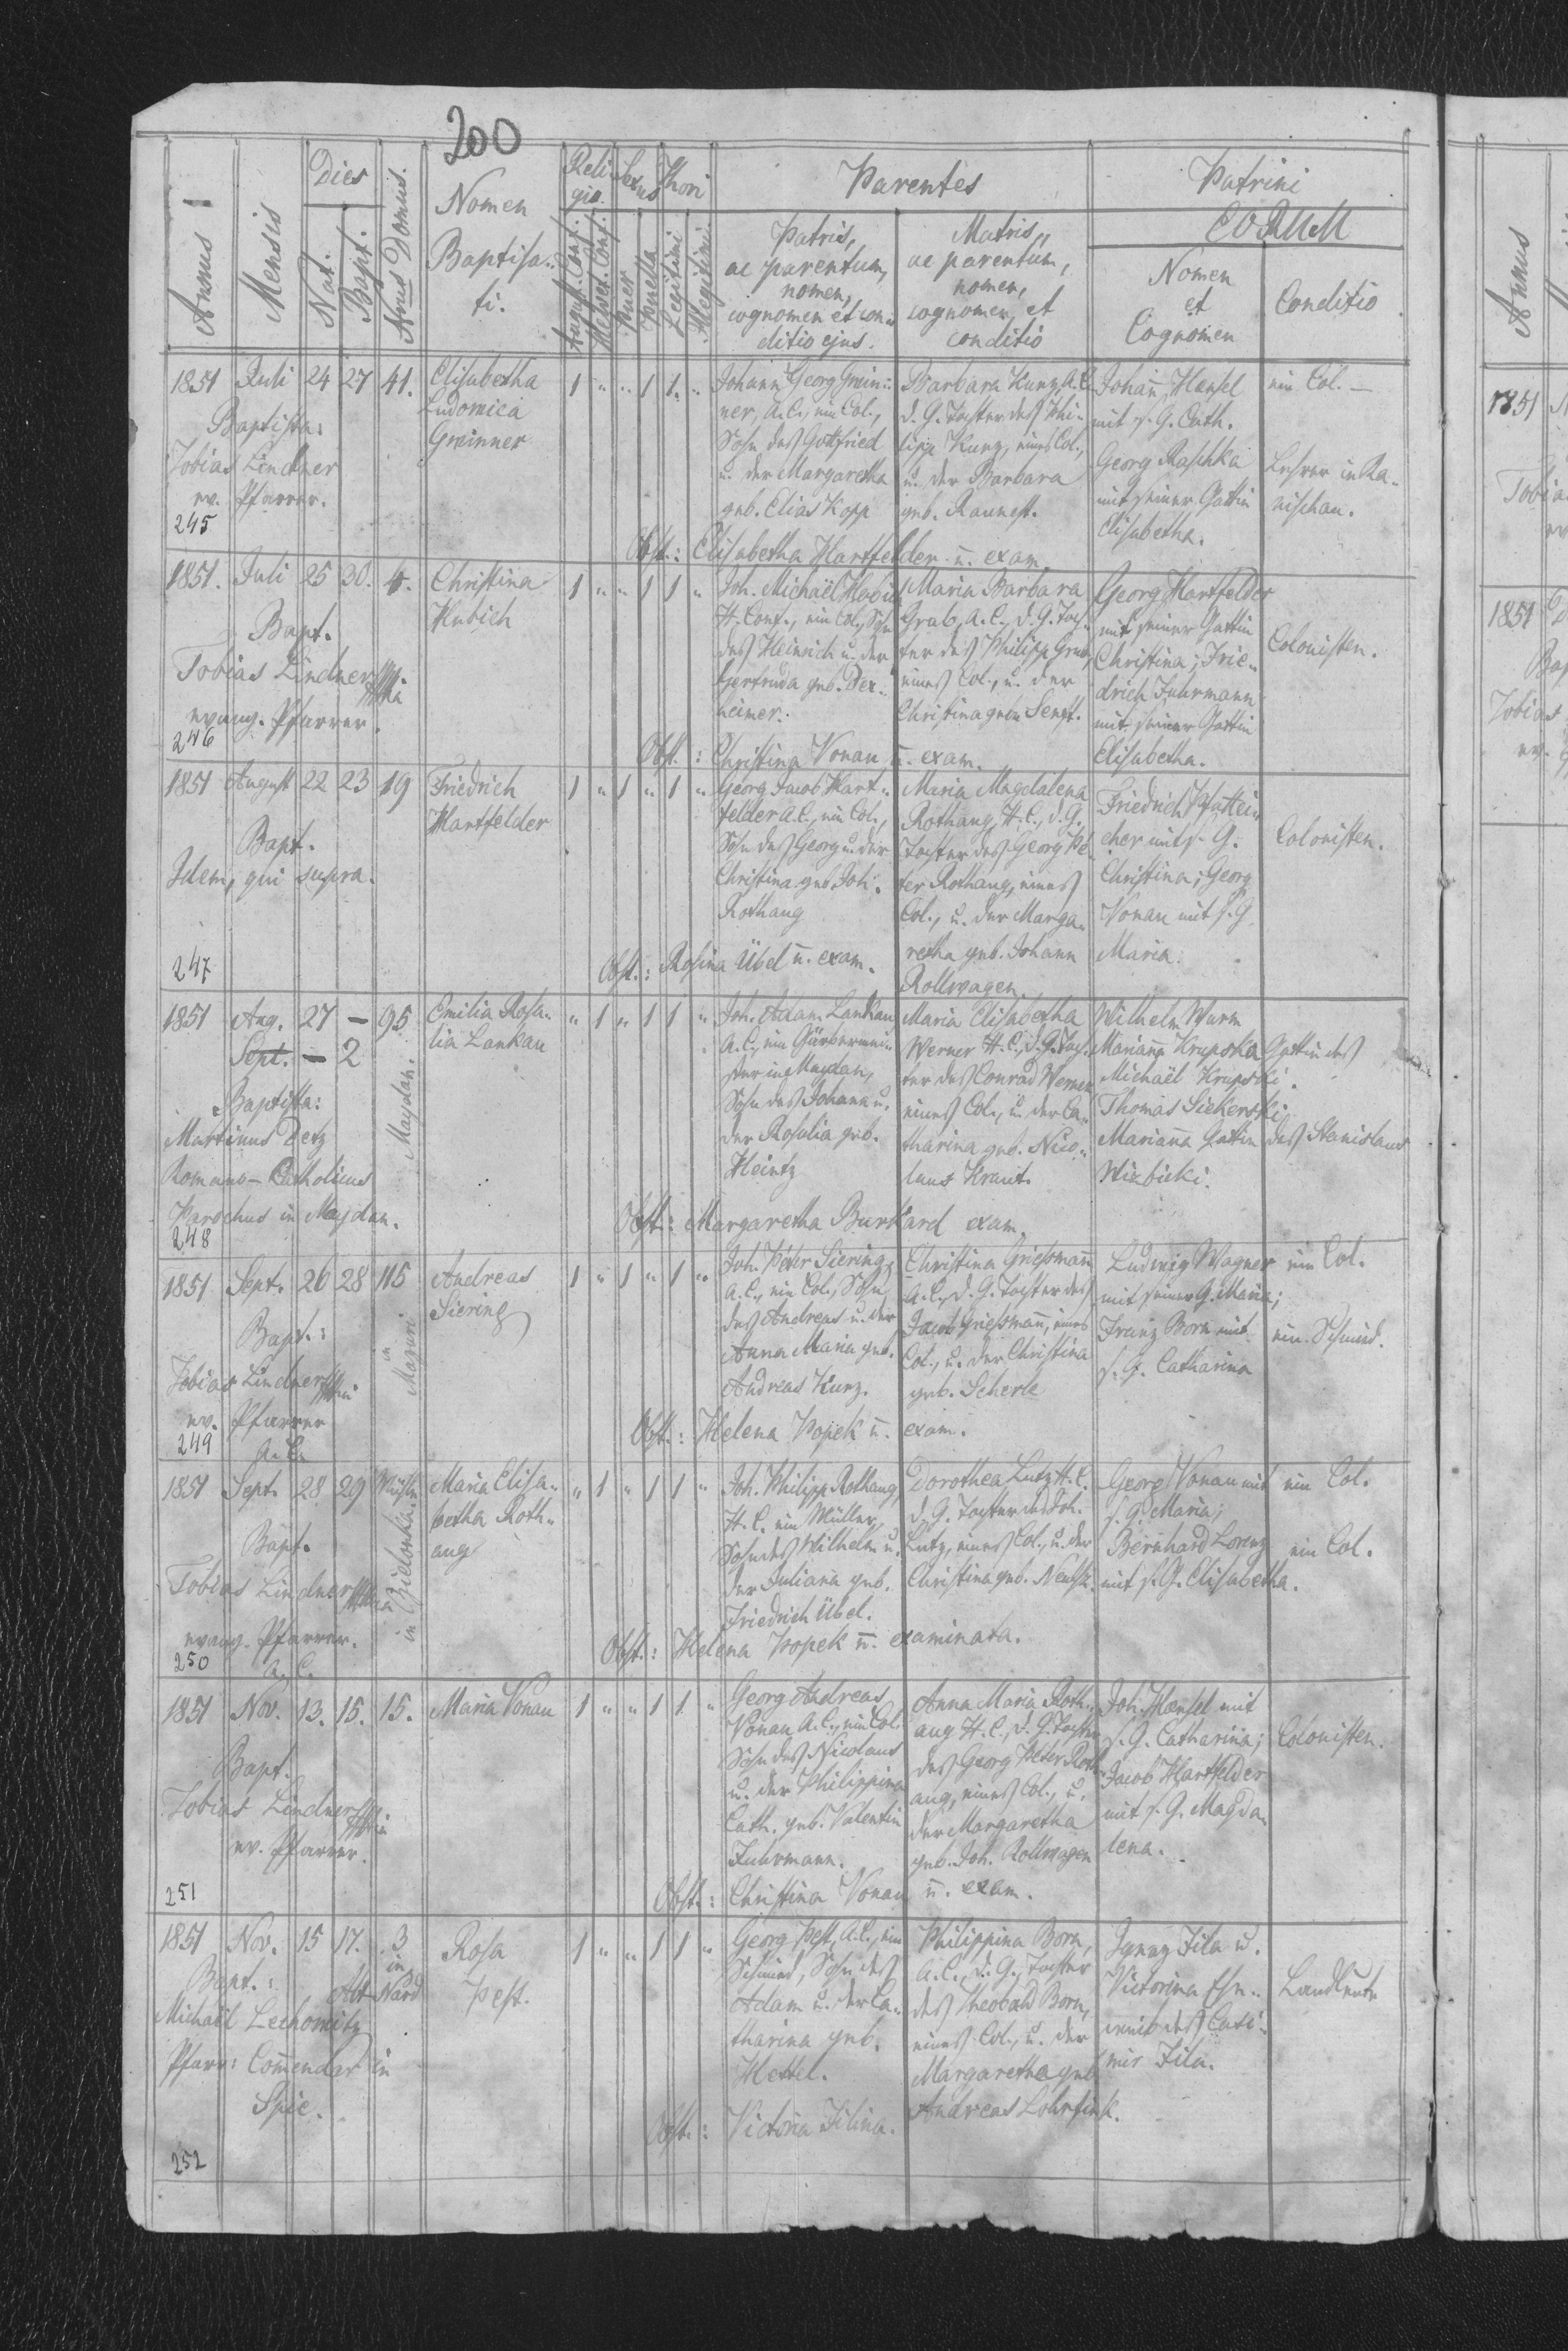 200
Annus
Mensis
Dies
Nat.
Bapt.
Nrus Domus.
Nomen
Baptisa-
ti.
Reli-
gio.
August. Conf.
Helvet. Conf.
Sexus
Puer
Puella
Thori
Legitimi
Illegitimi
Parentes
Patris,
ac parentum,
nomen,
cognomen et con-
ditio ejus.
Matris,
ac parentum,
nomen,
cognomen, et
conditio
Patrini
EORUM
Nomen
et
Cognomen
Conditio
Annus
1851 Juli 24 27 41.
Baptista:
Tobias Lindner
ev. Pfarrer.
245
Elisabetha
Ludovica
Greinner
1 " " 1 1. "
Johann Georg Grein-
ner, A. C., ein Col.,
Sohn des Gottfried
u. der Margaretha
geb. Elias Kopp
Barbara Kunz A. C.
d. G. Tochter des Phi-
lipp Kunz, eines Col.,
u. der Barbara
geb. Raunest.
Johann Hensel
mit s. G. Cath.
Georg Raschka
mit seiner Gattin
Elisabetha.
ein Col. —
Lehrer in Ra-
nischau.
Obst.: Elisabetha Hartfelder u. exam.
1851. Juli 25 30. 4.
Bapt.
Tobias Lindner
evang. Pfarrer.
246
Christina
Hubich
1 " " 1 1 "
Joh. Michaël Hubich
H. Conf., ein Col., Sohn
des Heinrich u. der
Gertruda geb. Dex-
heimer.
Maria Barbara
Grub, A. C., d. G. Toch-
ter des Philipp Grub,
eines Col., u. der
Christina geb. Senft.
Georg Hartfelder
mit seiner Gattin
Christina; Frie-
drich Fuhrmann
mit seiner Gattin
Elisabetha.
Colonisten.
Obst.: Christina Vonau u. exam.
1851 August 22 23 19
Bapt.
Idem, qui supra.
247
Friedrich
Hartfelder
1 " 1 " 1 "
Georg Jacob Hart-
felder A. C., ein Col.,
Sohn des Georg u. der
Christina geb. Joh.
Rothaug
Maria Magdalena
Rothaug, H. C., d. G.
Tochter des Georg Pe-
ter Rothaug, eines
Col., u. der Marga-
retha geb. Johann
Rollwagen.
Friedrich Pfattei-
cher mit s. G.
Christina; Georg
Vonau mit s. G.
Maria.
Colonisten.
Obst.: Rosina Übel u. exam.
1851 Aug. 27 — 95
Sept. — 2
Majdan.
Baptista:
Martinus Detz
Romano-Catholicus
Parochus in Majdan.
248
Emilia Rosa-
lia Lankau
" 1 " 1 1 "
Joh. Adam Lankau
A. C., ein Färbermei-
ster in Majdan,
Sohn des Johann u.
der Rosalia geb.
Heintz
Maria Elisabetha
Werner H. C., d. G. Toch-
ter des Conrad Werner
eines Col., u. der Ca-
tharina geb. Nico-
laus Kraut.
Wilhelm Wurm
Marianna Krupska Gattin des
Michaël Krupski.
Thomas Siekerski
Marianna Gattin des Stanislaus
Wizbicki.
Obst.: Margaretha Burkard exam.
1851 Sept. 26 28 115
in Mazuri
Bapt.:
Tobias Lindner
ev. Pfarrer
A. C.
249
Andreas
Siering
1 " 1 " 1 "
Joh. Peter Siering
A. C., ein Col., Sohn
des Andreas u. der
Anna Maria geb.
Andreas Kunz.
Christina Griessmann
A. C., d. G. Tochter des
Jacob Griessmann, eines
Col., u. der Christina
geb. Scherle
Ludwig Wagner
mit seiner G. Maria;
Franz Born mit
s. G. Catharina
ein Col.
ein Schmid.
Obst.: Helena Popek u. exam.
1851 Sept. 28 29
in Zielonka.
Bapt.
Tobias Lindner
evang. Pfarrer.
A. C.
250
Maria Elisa-
betha Roth-
aug
" 1 " 1 1 "
Joh. Philipp Rothaug,
H. C. ein Müller,
Sohn des Wilhelm u.
der Juliana geb.
Friedrich Übel.
Dorothea Lutz H. C.
d. G. Tochter des Joh.
Lutz, eines Col., u. der
Christina geb.
Georg Vonau mit
s. G. Maria;
Bernhard Lorenz
mit s. G. Elisabetha.
ein Col.
ein Col.
Obst.: Helena Popek u. examinata.
1851 Nov. 13. 15. 15.
Bapt.
Tobias Lindner
ev. Pfarrer.
251
Maria Vonau
1 " " 1 1 "
Georg Andreas
Vonau A. C., ein Col.
Sohn des Nicolaus
u. der Philippina
Cath. geb. Valentin
Fuhrmann.
Anna Maria Roth-
aug H. C., d. G. Tochter
des Georg Peter Roth-
aug, eines Col., u.
der Margaretha
geb. Joh. Rollwagen
Joh. Hensel mit
s. G. Catharina;
Jacob Hartfelder
mit s. G. Magda-
lena.
Colonisten.
Obst.: Christina Vonau u. exam.
1851 Nov. 15 17. 3
in
Alt Nard
Bapt.:
Michaël Lechowitz
Pfarr: Commendar in
Spie.
252
Rosa
Pest.
1 " " 1 1 "
Georg Pest, A. C., ein
Schmied, Sohn des
Adam u. der Ca-
tharina geb.
Hettel.
Philippina Born,
A. C., d. G. Tochter
des Theobald Born,
eines Col., u. der
Margaretha geb.
Andreas Lohrfink.
Ignaz Fila u.
Victorina Ehe-
weib des Casi-
mir Fila.
Landleute
Obst.: Victoria Filina.
1851
Tobias
1851
Tobias